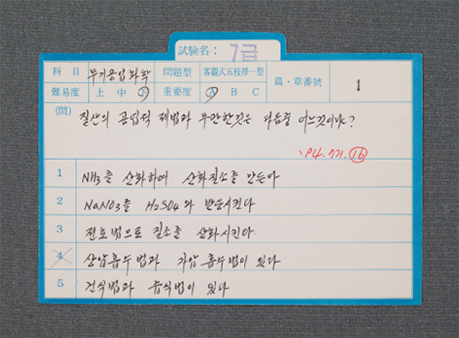 試驗名: 7급
科目 무기공업화학 問題型 客觀式五枝擇一型 篇·章番號 1
難易度 上 中 下 重要度 A B C
(問) 질산의 공업적 제법과 무관한것은 다음중 어느것이냐?
'84. 기기. 16
1 NH₃를 산화하여 산화질소를 만든다
2 NaNO₃를 H₂SO₄와 반응시킨다
3 전호법으로 질소를 산화시킨다.
4 상압흡수법과 가압흡수법이 있다
5 건식법과 습식법이 있다